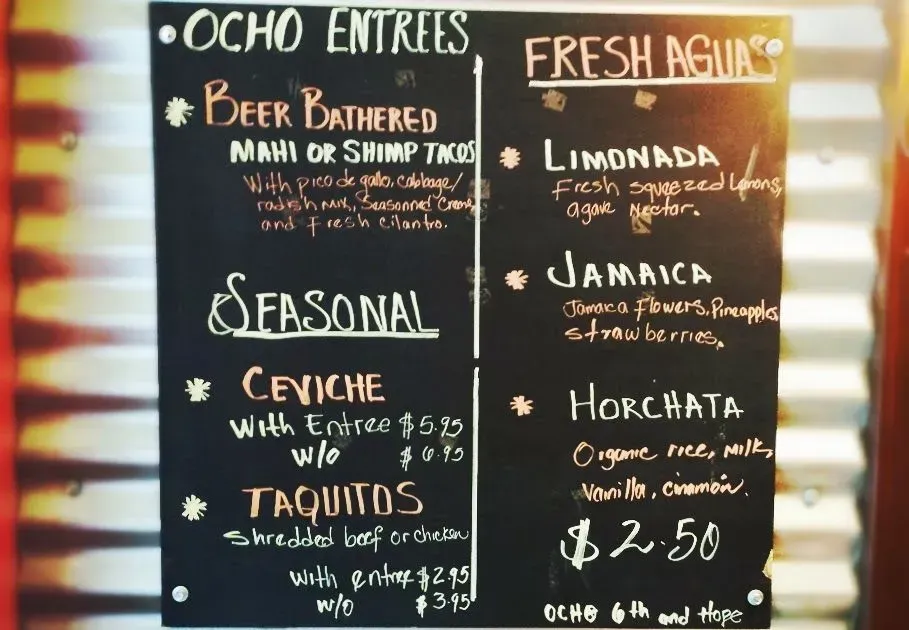 OCHO ENTREES
BEER BATHERED
MAHI OR SHIMP TACOS
With pico de gallo, cabbage/
radish mix, Seasonned Crema,
and Fresh Cilantro.
SEASONAL
CEVICHE
With Entree $5.95
w/o $6.95
TAQUITOS
Shredded beef or chicken
With entree $2.95
w/o $3.95
FRESH AGUAS
LIMONADA
Fresh squeezed Lemons,
agave Nectar.
JAMAICA
Jamaica Flowers, Pineapples,
strawberries.
HORCHATA
Organic rice, milk,
Vainilla, cinamon.
$2.50
OCHO 6th and Hope